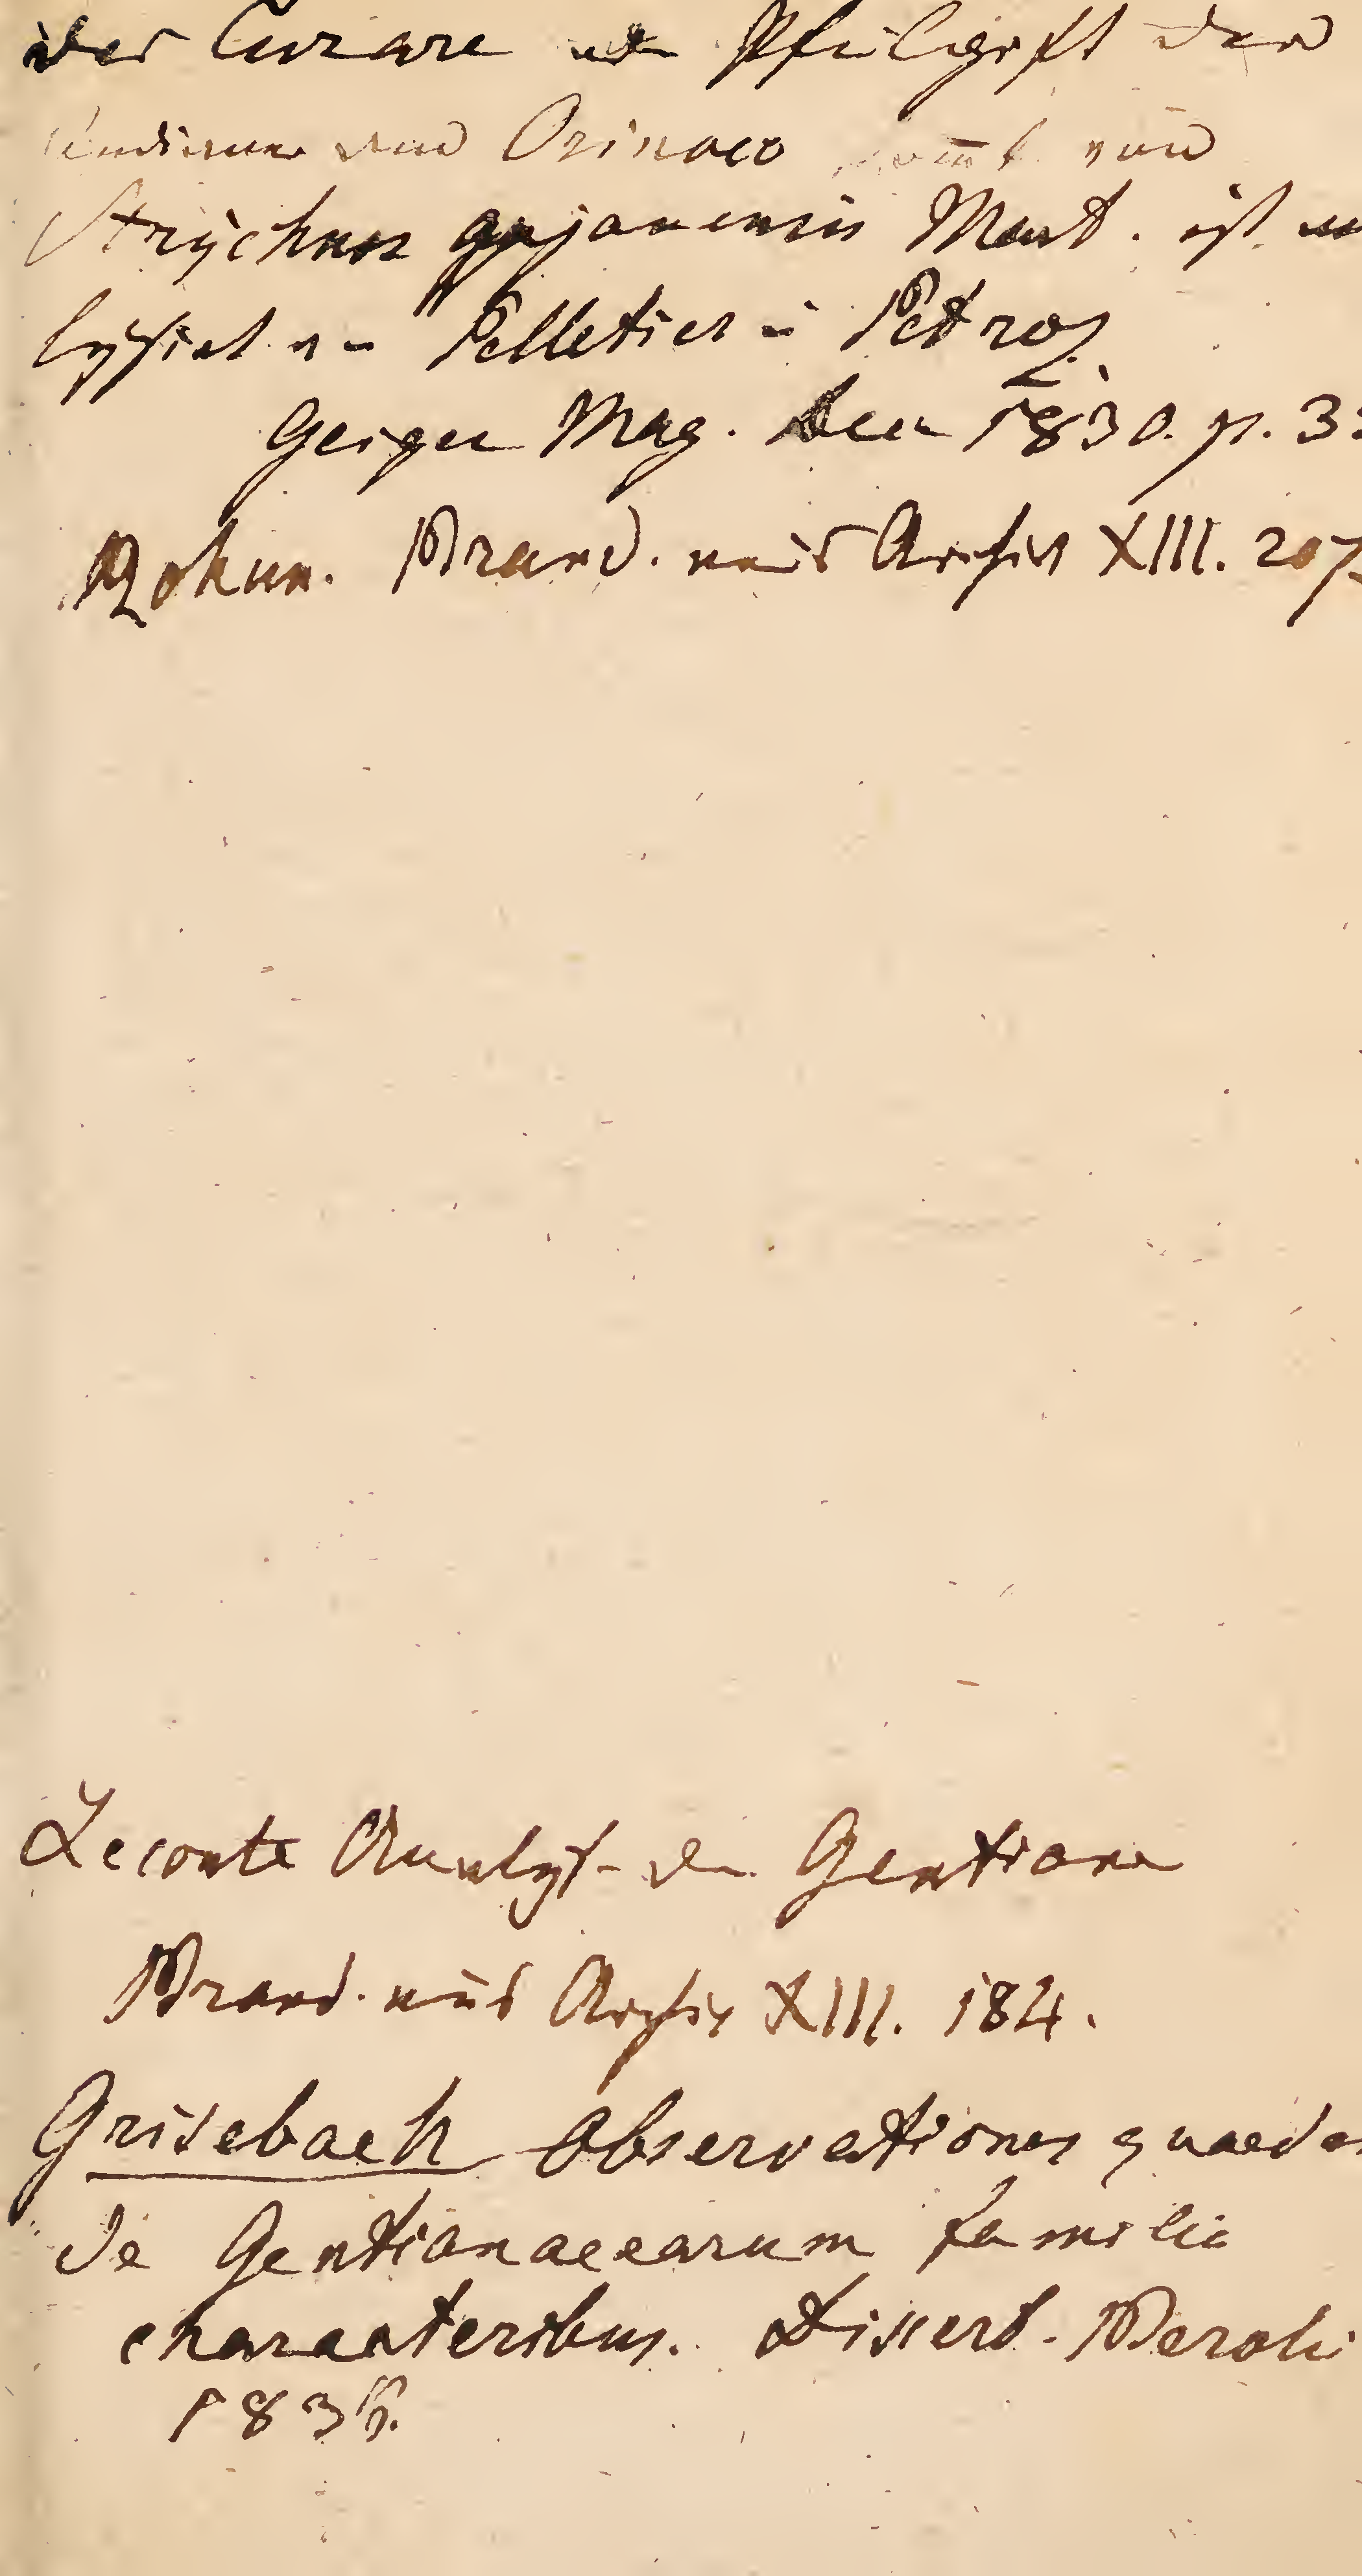 Das Curare Pfeilgift der
Indianer am Orinoco kom̄t von
Strychnos gujanensis Mart. ist
lysirt v. Pelletier u Petroz
Geiger Mag. 1830. p. 3
Brand. und Archiv XIII. 207
Leconte Analys. der Gentiana
Brand. und Archiv XIII. 184.
Grisebach Observationes quaeda
de Gentianacearum familia
characteribus. Dissert. Beroli
1836.